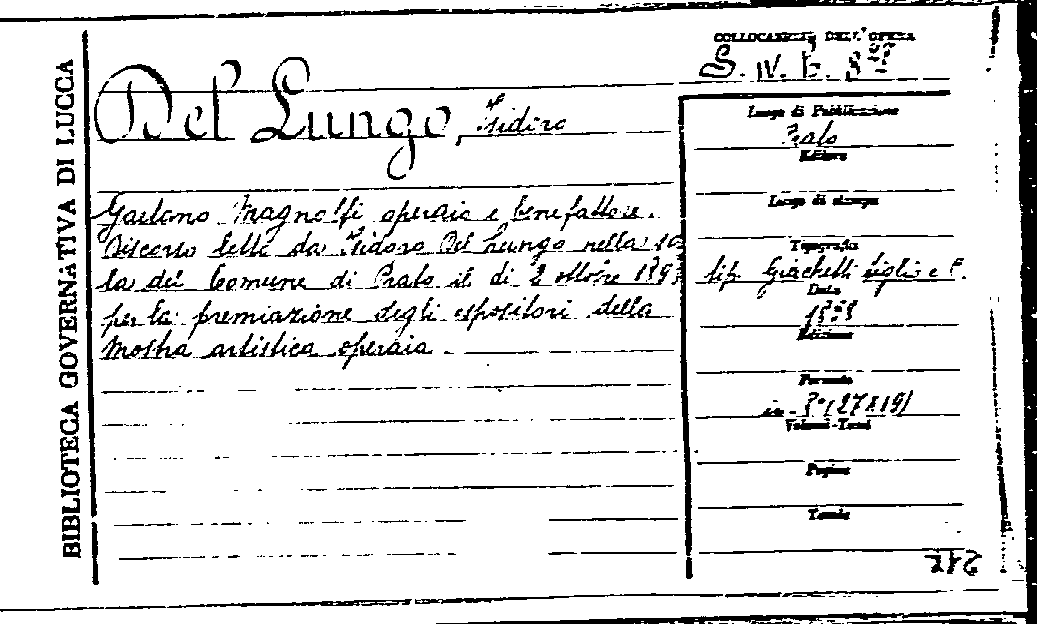 BIBLIOTECA GOVERNATIVA DI LUCCA
COLLOCAZIONE DELL'OPERA
S. IV. E.
Del Lungo, Isidoro
Gaetano Magnolfi operaio e benefattore.
Discorso letto da Isidoro Del Lungo nella sa
la del Comune di Prato il dì 2 ottobre
per la premiazione degli espositori della
Mostra artistica operaia.
Luogo di Pubblicazione
Prato
Editore
Luogo di stampa
Tipografia
tip. Giachetti figlio e C.
Data
Edizione
Formato
in 8° (27x19)
Volumi-Tomi
Pagine
Tavole